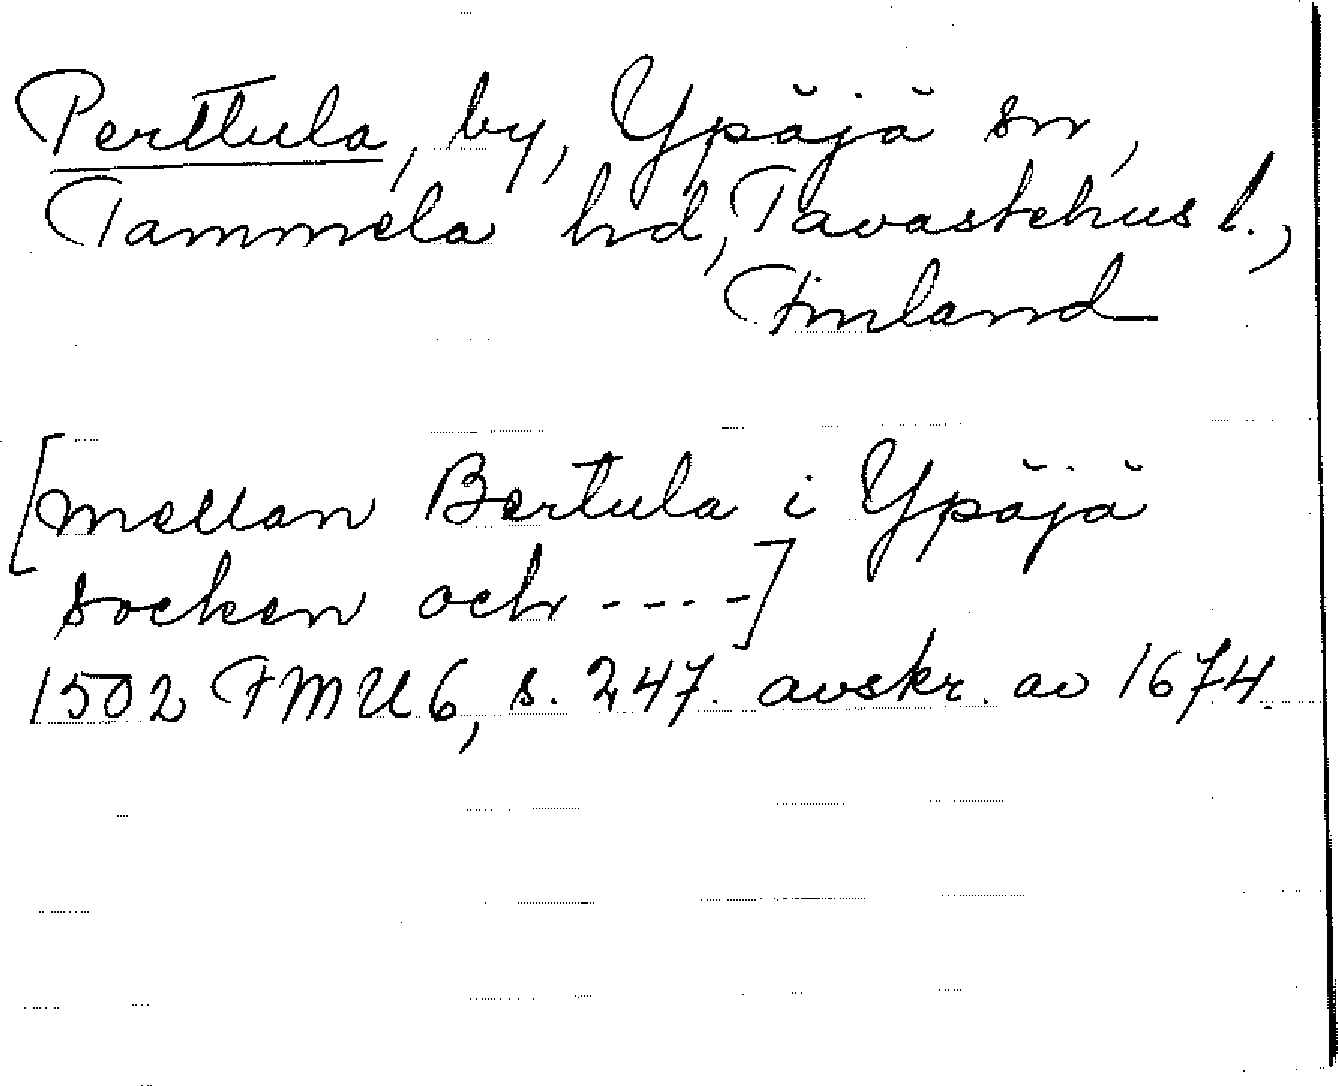 Perttula, by, Ypäjä sn,
Tammela hd, Tavastehus l.,
Finland
[mellan Bertula i Ypäjä
socken och ----]
1502 FMU6, s. 247. avskr. av 1674.